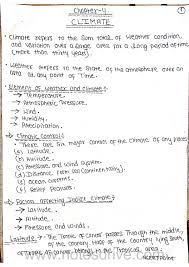 Chapter-4
CLIMATE
• Climate refers to the sum total of weather condition
and variation over a large area for a long period of time
(more than thirty years).
• Weather refers to the state of the atmosphere over an
area at any point of time.
• Element of weather and climate:-
→ Temperature.
→ Atmospheric Pressure.
→ Wind.
→ Humidity.
→ Precipitation.
• Climatic Controls:-
→ There are six major control of the climate of any place
(a) Latitude.
(b) Altitude.
(c) Pressure and wind system.
(d) Distance from sea (Continentality).
(e) Ocean currents.
(f) Relief features.
• Factors affecting India's climate:-
→ Latitude.
→ Altitude.
→ Pressure and Winds.
• Latitude:- The Tropic of Cancer passes through the middle
of the country. Half of the country lying south
of Tropic of Cancer belongs to the Tropical area.